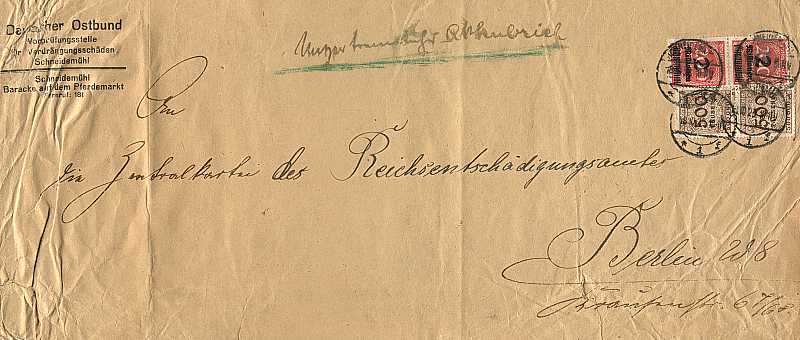 Deutscher Ostbund
Vorprüfungsstelle
für Verdrängungsschäden,
Schneidemühl
Schneidemühl
Baracke auf dem Pferdemarkt
Fernruf: 181
An
die Zentralkartei des Reichsentschädigungsamtes
Berlin W8
Krausenstr. 67/68.
2
2
500
500